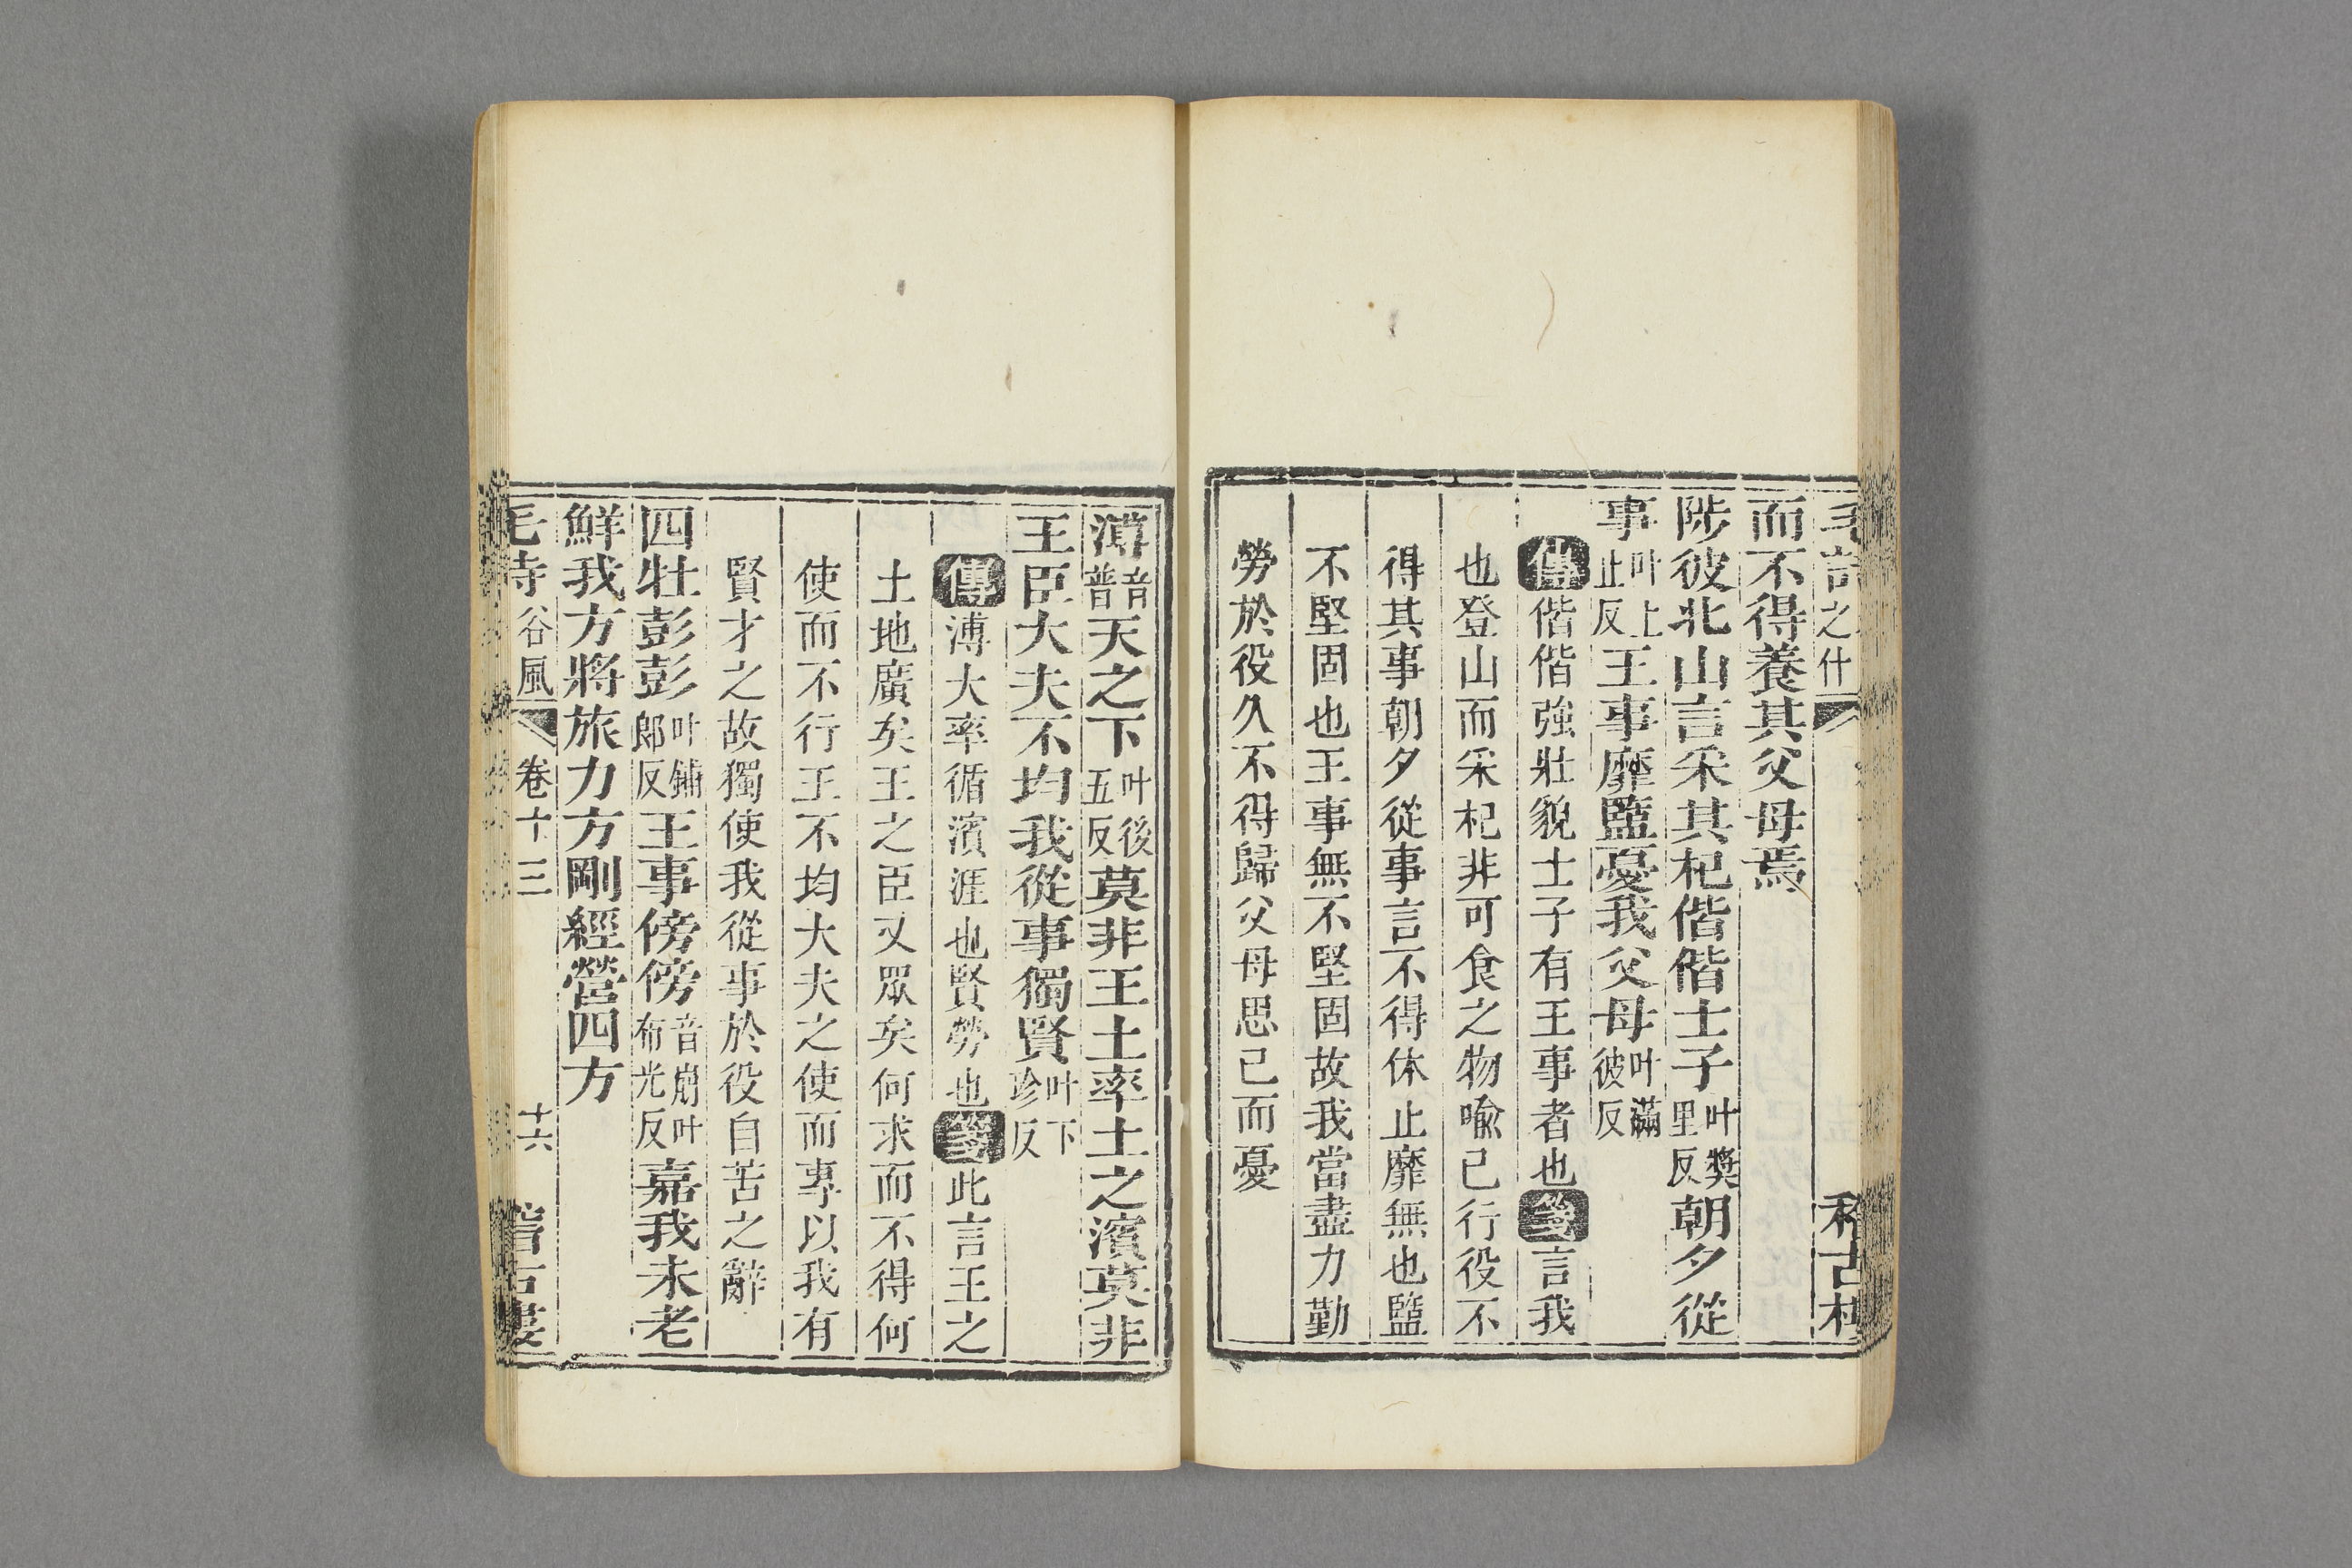 毛詩之什
而不得養其父母焉
陟彼北山言采其杞偕偕士子叶奬里反朝夕從
事叶上止反王事靡盬憂我父母叶滿彼反
傳偕偕強壯貌士子有王事者也箋言我
也登山而采杞非可食之物喻己行役不
得其事朝夕從事言不得休止靡無也盬
不堅固也王事無不堅固故我當盡力勤
勞於役久不得歸父母思己而憂
溥音普天之下叶後五反莫非王土率土之濱莫非
王臣大夫不均我從事獨賢叶下珍反
傳溥大率循濱涯也賢勞也箋此言王之
土地廣矣王之臣又眾矣何求而不得何
使而不行王不均大夫之使而專以我有
賢才之故獨使我從事於役自苦之辭
四牡彭彭叶鋪郎反王事傍傍音崩叶布光反嘉我未老
鮮我方將旅力方剛經營四方
毛詩谷風 卷十三 十六 稽古樓